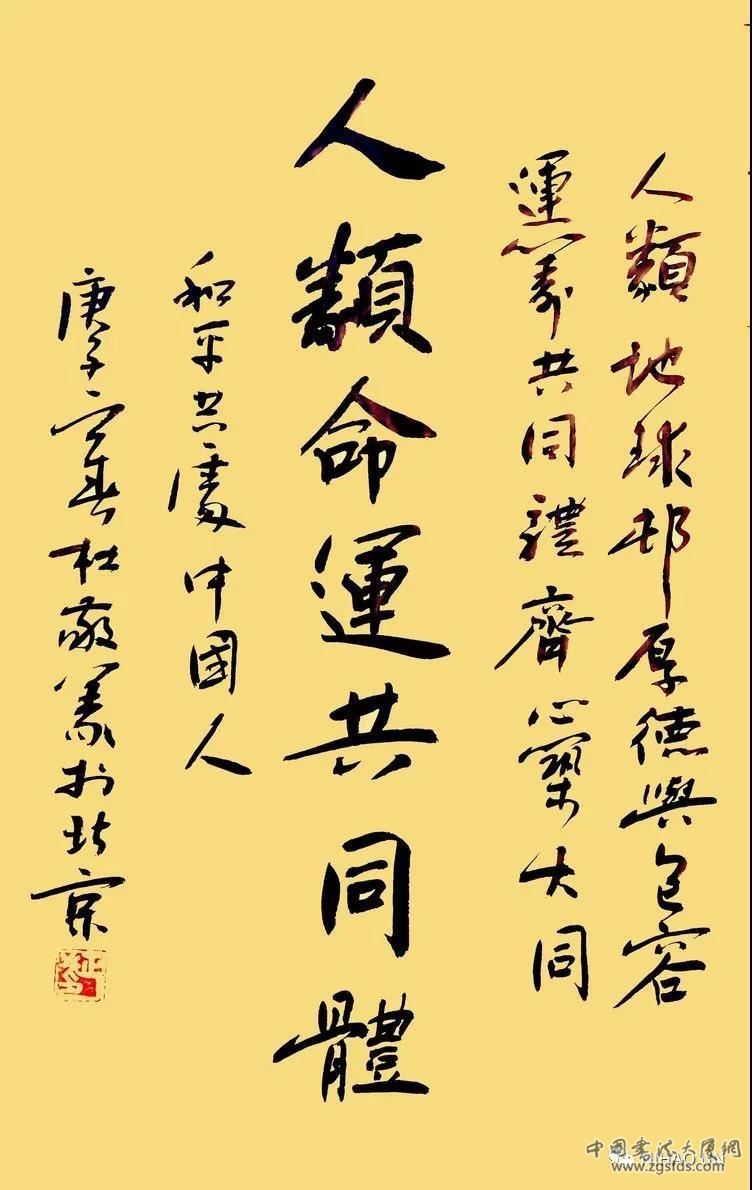 人類地球邨厚德與包容
運籌共同禮齊心築大同
人類命運共同體
和平共處中國人
庚子春杜敬義於北京
中国書法大厦網
NIHAO UN
www.zgsfds.com